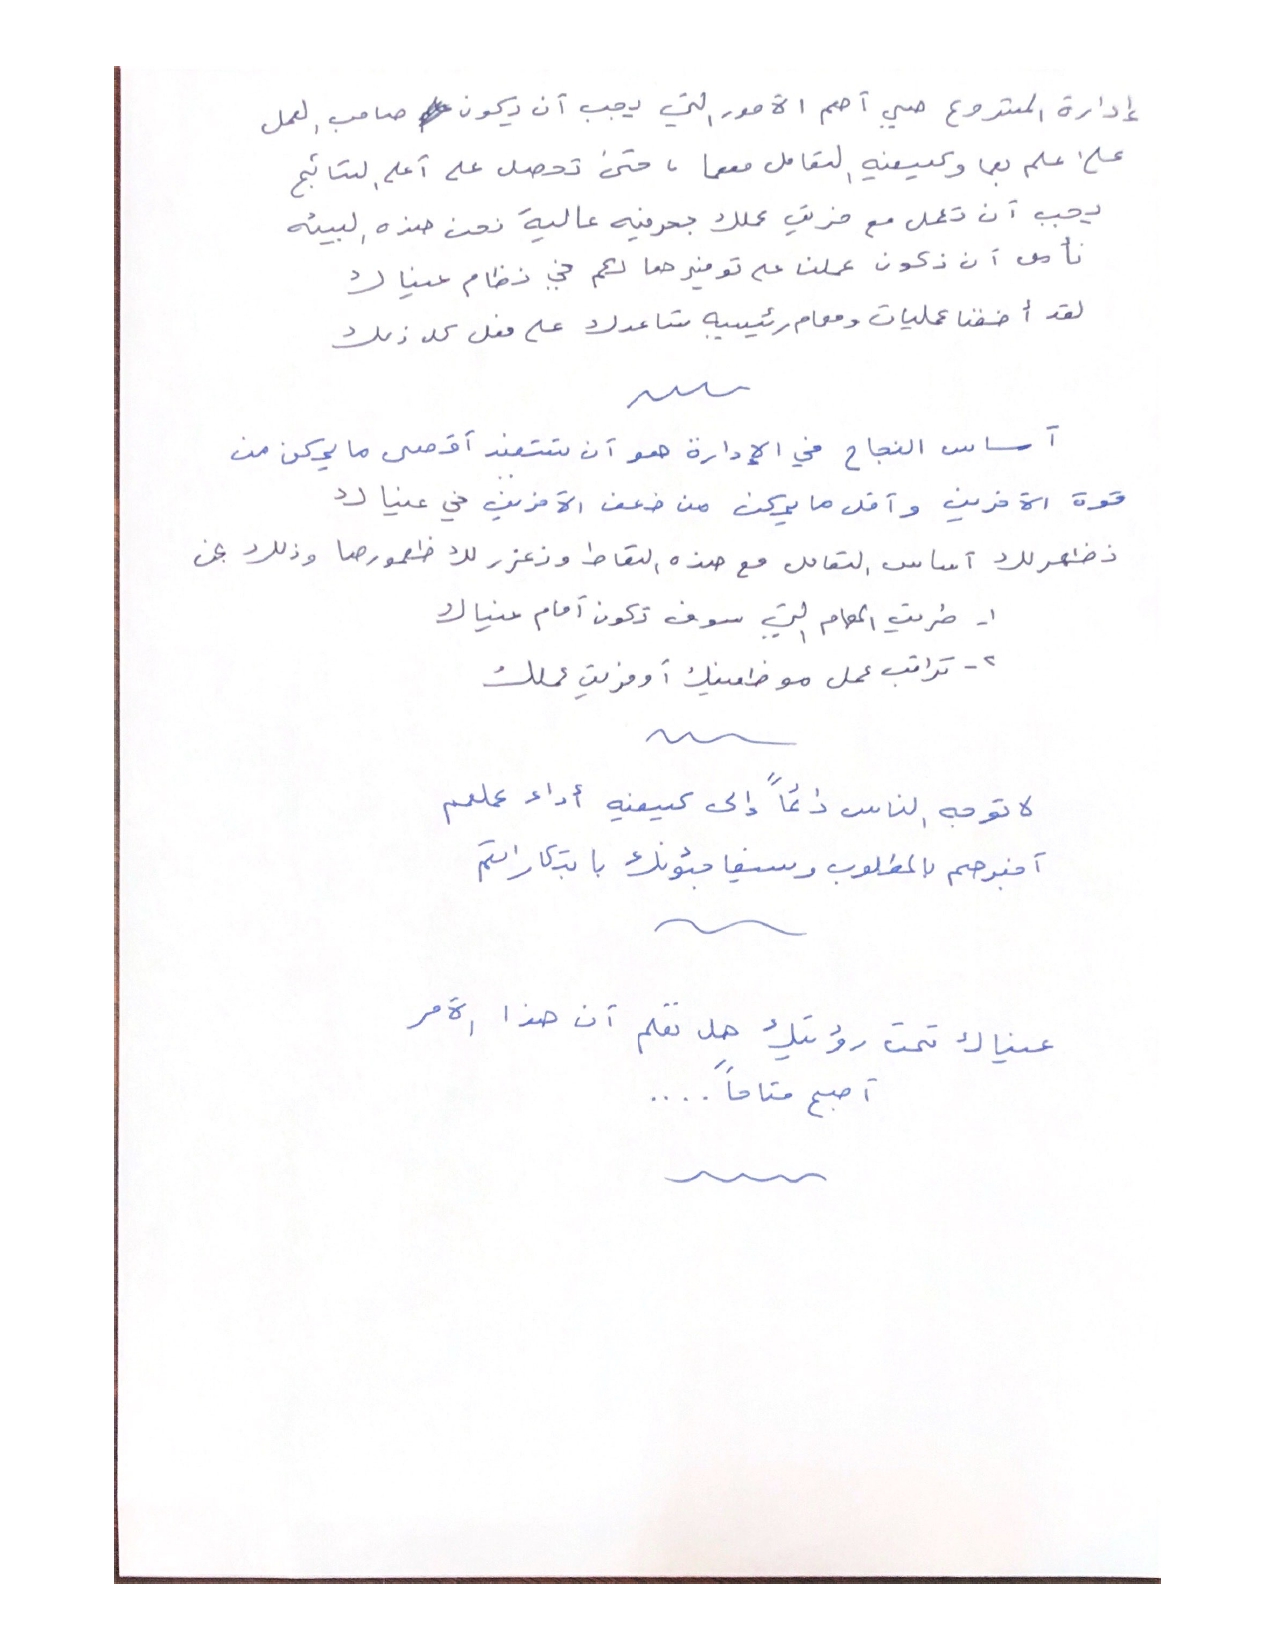 إدارة المشروع هي أهم الأمور التي يجب أن يكون صاحب العمل
على علم بها وكيفية التعامل معها ، حتى تحصل على أعلى النتائج
يجب أن تعمل مع فريق عملك بحرفية عالية نحن هذه البيئة
نأمل أن نكون عملنا على توفيرها لكم في نظام عيناك
لقد أضفنا عمليات ومهام رئيسية تساعدك على فعل كل ذلك
أساس النجاح في الإدارة هو أن تستفيد أقصى ما يمكن من
قوة الآخرين وأقل ما يمكن من ضعف الآخرين في عيناك
نظهر لك أساس التعامل مع هذه النقاط ونعزز لك ظهورها وذلك عن
١- طريق المهام التي سوف تكون أمام عيناك
٢- تراقب عمل موظفينك أو فريق عملك
لا توجه الناس دائماً إلى كيفية أداء عملهم
أخبرهم بالمطلوب وسيفاجئونك بابتكاراتهم
عيناك تحت رؤيتك هل تعلم أن هذا الأمر
أصبح متاحاً ....